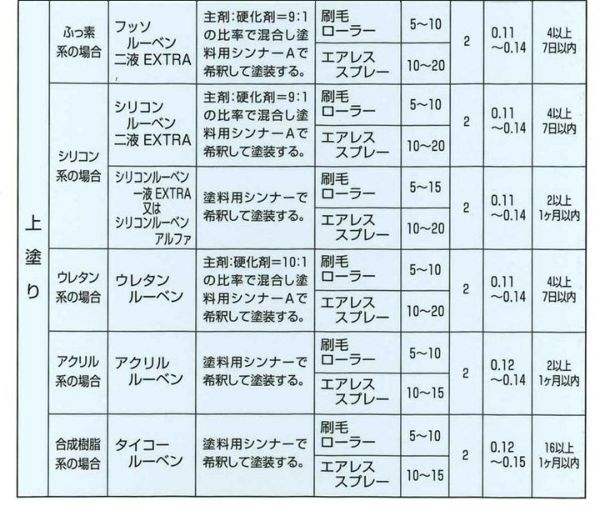 上塗り
ふっ素
系の場合
フッソ
ルーベン
二液EXTRA
主剤:硬化剤=9:1
の比率で混合し塗
料用シンナーAで
希釈して塗装する。
刷毛
ローラー
5〜10
エアレス
スプレー
10〜20
2
0.11
〜0.14
4以上
7日以内
シリコン
系の場合
シリコン
ルーベン
二液EXTRA
主剤:硬化剤=9:1
の比率で混合し塗
料用シンナーAで
希釈して塗装する。
刷毛
ローラー
5〜10
エアレス
スプレー
10〜20
2
0.11
〜0.14
4以上
7日以内
シリコンルーベン
一液EXTRA
又は
シリコンルーベン
アルファ
塗料用シンナーで
希釈して塗装する。
刷毛
ローラー
5〜15
エアレス
スプレー
10〜20
2
0.11
〜0.14
2以上
1ヶ月以内
ウレタン
系の場合
ウレタン
ルーベン
主剤:硬化剤=10:1
の比率で混合し塗
料用シンナーAで
希釈して塗装する。
刷毛
ローラー
5〜10
エアレス
スプレー
10〜20
2
0.11
〜0.14
4以上
7日以内
アクリル
系の場合
アクリル
ルーベン
塗料用シンナーで
希釈して塗装する。
刷毛
ローラー
5〜10
エアレス
スプレー
10〜15
2
0.12
〜0.14
2以上
1ヶ月以内
合成樹脂
系の場合
タイコー
ルーベン
塗料用シンナーで
希釈して塗装する。
刷毛
ローラー
5〜10
エアレス
スプレー
10〜15
2
0.12
〜0.15
16以上
1ヶ月以内